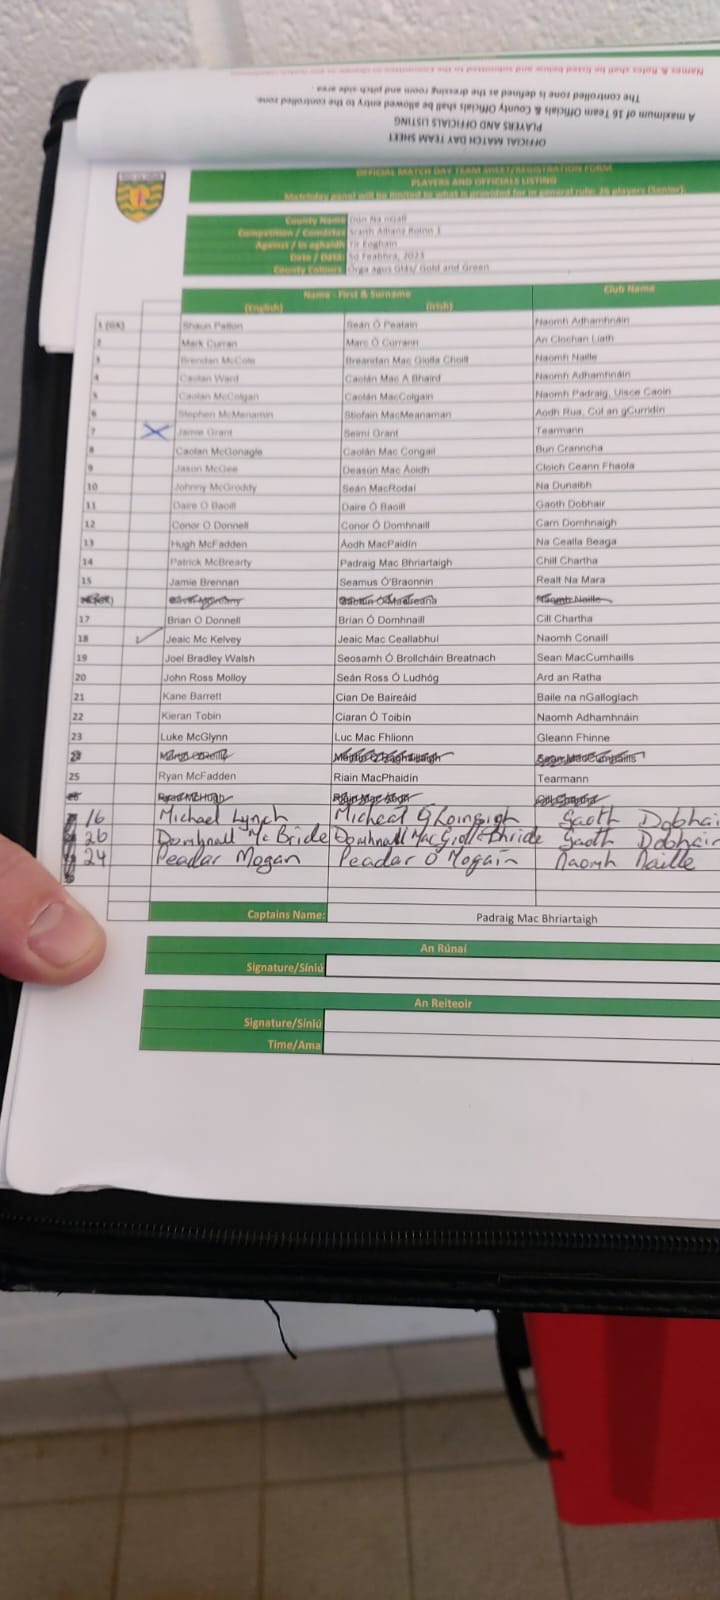 Names & Roles shall be listed below and submitted to the
The controlled zone is defined as the dressing room and pitch side area .
A maximum of 16 Team Officials & County Officials shall be allowed entry to the controlled zone.
PLAYERS AND OFFICIALS LISTING
OFFICIAL MATCH DAY TEAM SHEET
OFFICIAL MATCH DAY TEAM SHEET/REGISTRATION FORM
PLAYERS AND OFFICIALS LISTING
Matchday panel will be limited to what is provided for in general rule: 26 players (Senior).
County Name Dún Na nGall
Competition / Comórtas Sraith Allianz Roinn 1
Against / In aghaidh Tír Eoghain
Date / Dáta: Feabhra, 2023
County Colours Órga agus Glas/ Gold and Green
Name - First & Surname Club Name
(English) (Irish)
1 (GK) Shaun Patton Seán Ó Peatain Naomh Adhamhnáin
2 Mark Curran Marc Ó Currann An Clochan Liath
3 Brendan McCole Breandan Mac Giolla Choill Naomh Naille
4 Caolan Ward Caolán Mac A Bhaird Naomh Adhamhnáin
5 Caolan McColgan Caolán MacColgain Naomh Padraig, Uisce Caoin
6 Stephen McMenamin Stiofain MacMeanaman Aodh Rua, Cúl an gCuirridín
7 Jamie Grant Séimí Grant Tearmann
8 Caolan McGonagle Caolán Mac Congail Bun Cranncha
9 Jason McGee Deasún Mac Aoidh Cloich Ceann Fhaola
10 Johnny McGroddy Seán MacRodaí Na Dunaibh
11 Daire O Baoill Daire Ó Baoill Gaoth Dobhair
12 Conor O Donnell Conor Ó Domhnaill Carn Domhnaigh
13 Hugh McFadden Aodh MacPaidín Na Cealla Beaga
14 Patrick McBrearty Padraig Mac Bhriartaigh Chill Chartha
15 Jamie Brennan Seamus O'Braonnin Realt Na Mara
Naomh Naille
17 Brian O Donnell Brian Ó Domhnaill Cill Chartha
18 Jeaic Mc Kelvey Jeaic Mac Ceallabhuí Naomh Conaill
19 Joel Bradley Walsh Seosamh Ó Brollcháin Breatnach Sean MacCumhaills
20 John Ross Molloy Seán Ross Ó Ludhóg Ard an Ratha
21 Kane Barrett Cian De Baireáid Baile na nGalloglach
22 Kieran Tobin Ciaran Ó Toibín Naomh Adhamhnáin
23 Luke McGlynn Luc Mac Fhlionn Gleann Fhinne
Sean MacCumhaills
25 Ryan McFadden Riain MacPhaidín Tearmann
16 Michael Lynch Micheal Ó Loinsigh Gaoth Dobhair
26 Domhnall Mc Bride Domhnall Mac Giolla Bhride Gaoth Dobhair
24 Peadar Mogan Peadar Ó Mogain Naomh Naille
Captains Name: Padraig Mac Bhriartaigh
An Rúnaí
Signature/Síniú
An Reiteoir
Signature/Síniú
Time/Ama